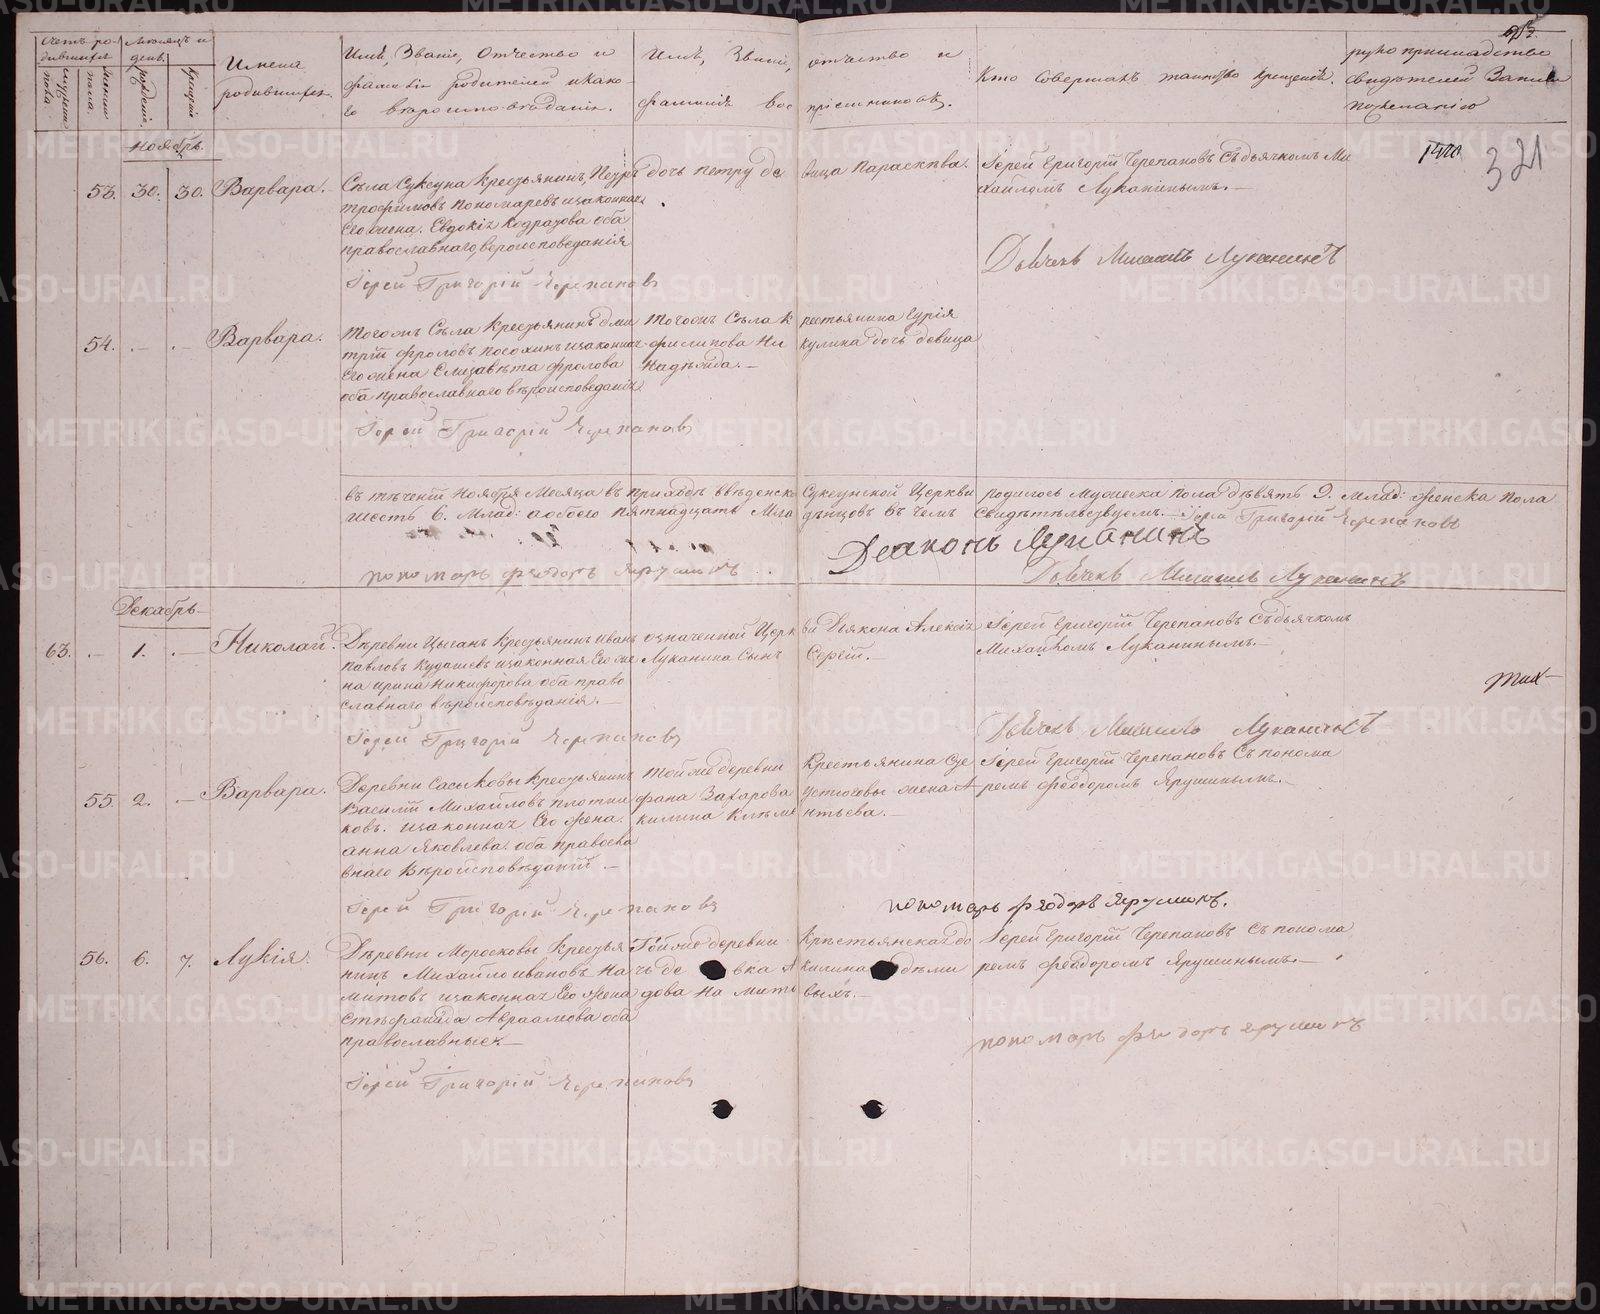 Счетъ ро-
дившихся
Мѣсяцъ и
день.
мужеска
пола.
женска
пола.
рожденіе.
Крещенія
Имена
родившихся.
Имѣ, Званіе, Отчество и
фамиліи родителей и како-
го вѣроисповѣданія.
Имѣ, Званіе, отчество и
фамилія восприемниковъ.
Кто Совершалъ таинство крещенія.
рукоприкладство
свидѣтелей Записи
по желанію
1420
321
Ноябрь.
53. 30. 30. Варвара.
Села Суксуна Крестьянинъ, Петръ
трофимовъ пономаревъ изаконная
Его жена. Евдокія Кодратова оба
православнаго вероисповеданія
Іерей Григорій Черепановъ
дочь петру девица Параскева.
Іерей Григорій Черепановъ Съ дьячкомъ Ми
хайломъ Луканинымъ.—
Дьячекъ Михаилъ Луканинъ
54. .— .— Варвара.
Тогожъ Села Крестьянинъ дми
трій фроловъ посохинъ изаконная
Его жена Елизавѣта фролова
оба православнаго вѣроисповеданія
Іерей Григорій Черепановъ
Тогожъ Села Крестьянина Гурія
филипова Никулина дочь девица
Надѣжда.—
въ теченіи Ноября Месяца въ приходѣ Введенско Суксунской Церкви родилось Мужеска пола дѣвять 9. млад: женска пола
шесть 6. Млад: а обоего пятнадцать Младѣнцовъ въ чемъ Свидѣтельствуемъ.— Іерей Григорій Черепановъ
Деаконъ Луканинъ
пономарь феодоръ Ярушинъ
Дьячекъ Михаилъ Луканинъ
Декабрь
63. .— 1. .— Николай.
Дѣревни Цыганъ Крестьянинъ иванъ
павловъ Кудашевъ изаконная Его же
на ирина Никифорова оба право
славнаго вѣроисповѣданія.—
Іерей Григорій Черепановъ
означенной Церкви Діякона Алексія
Луканина Сынъ Сергій.—
Іерей Григорій Черепановъ Съ дьячкомъ
Михайломъ Луканинымъ.—
тих-
Дьячекъ Михаилъ Луканинъ
55 2. .— Варвара.
Деревни Сасыковы Крестьянинъ
Василій Михайловъ плотни
ковъ. изаконная Его жена.
анна Яковлева. оба правосла
внаго Вѣроисповѣданій.—
Іерей Григорій Черепановъ
Той же деревни Крестьянина Сте
фана Захарова Устюговы жена А
килина Климентьева.—
Іерей Григорій Черепановъ Съ понома
ремъ феодоромъ Ярушинымъ.—
пономарь феодоръ Ярушинъ.
56. 6. 7. Лукія.
Дѣревни Моросковы Крестья
нинъ Михайло ивановъ На
митовъ изаконная Его жена
Стефанида Авраамова оба
православные.—
Іерей Григорій Черепановъ
Той же деревни Крѣстьянская до
чь де вка Акилина дѣми
дова На митовыхъ.—
Іерей Григорій Черепановъ Съ понома
ремъ феодоромъ Ярушинымъ.—
пономарь феодоръ Ярушинъ
METRIKI.GASO-URAL.RU